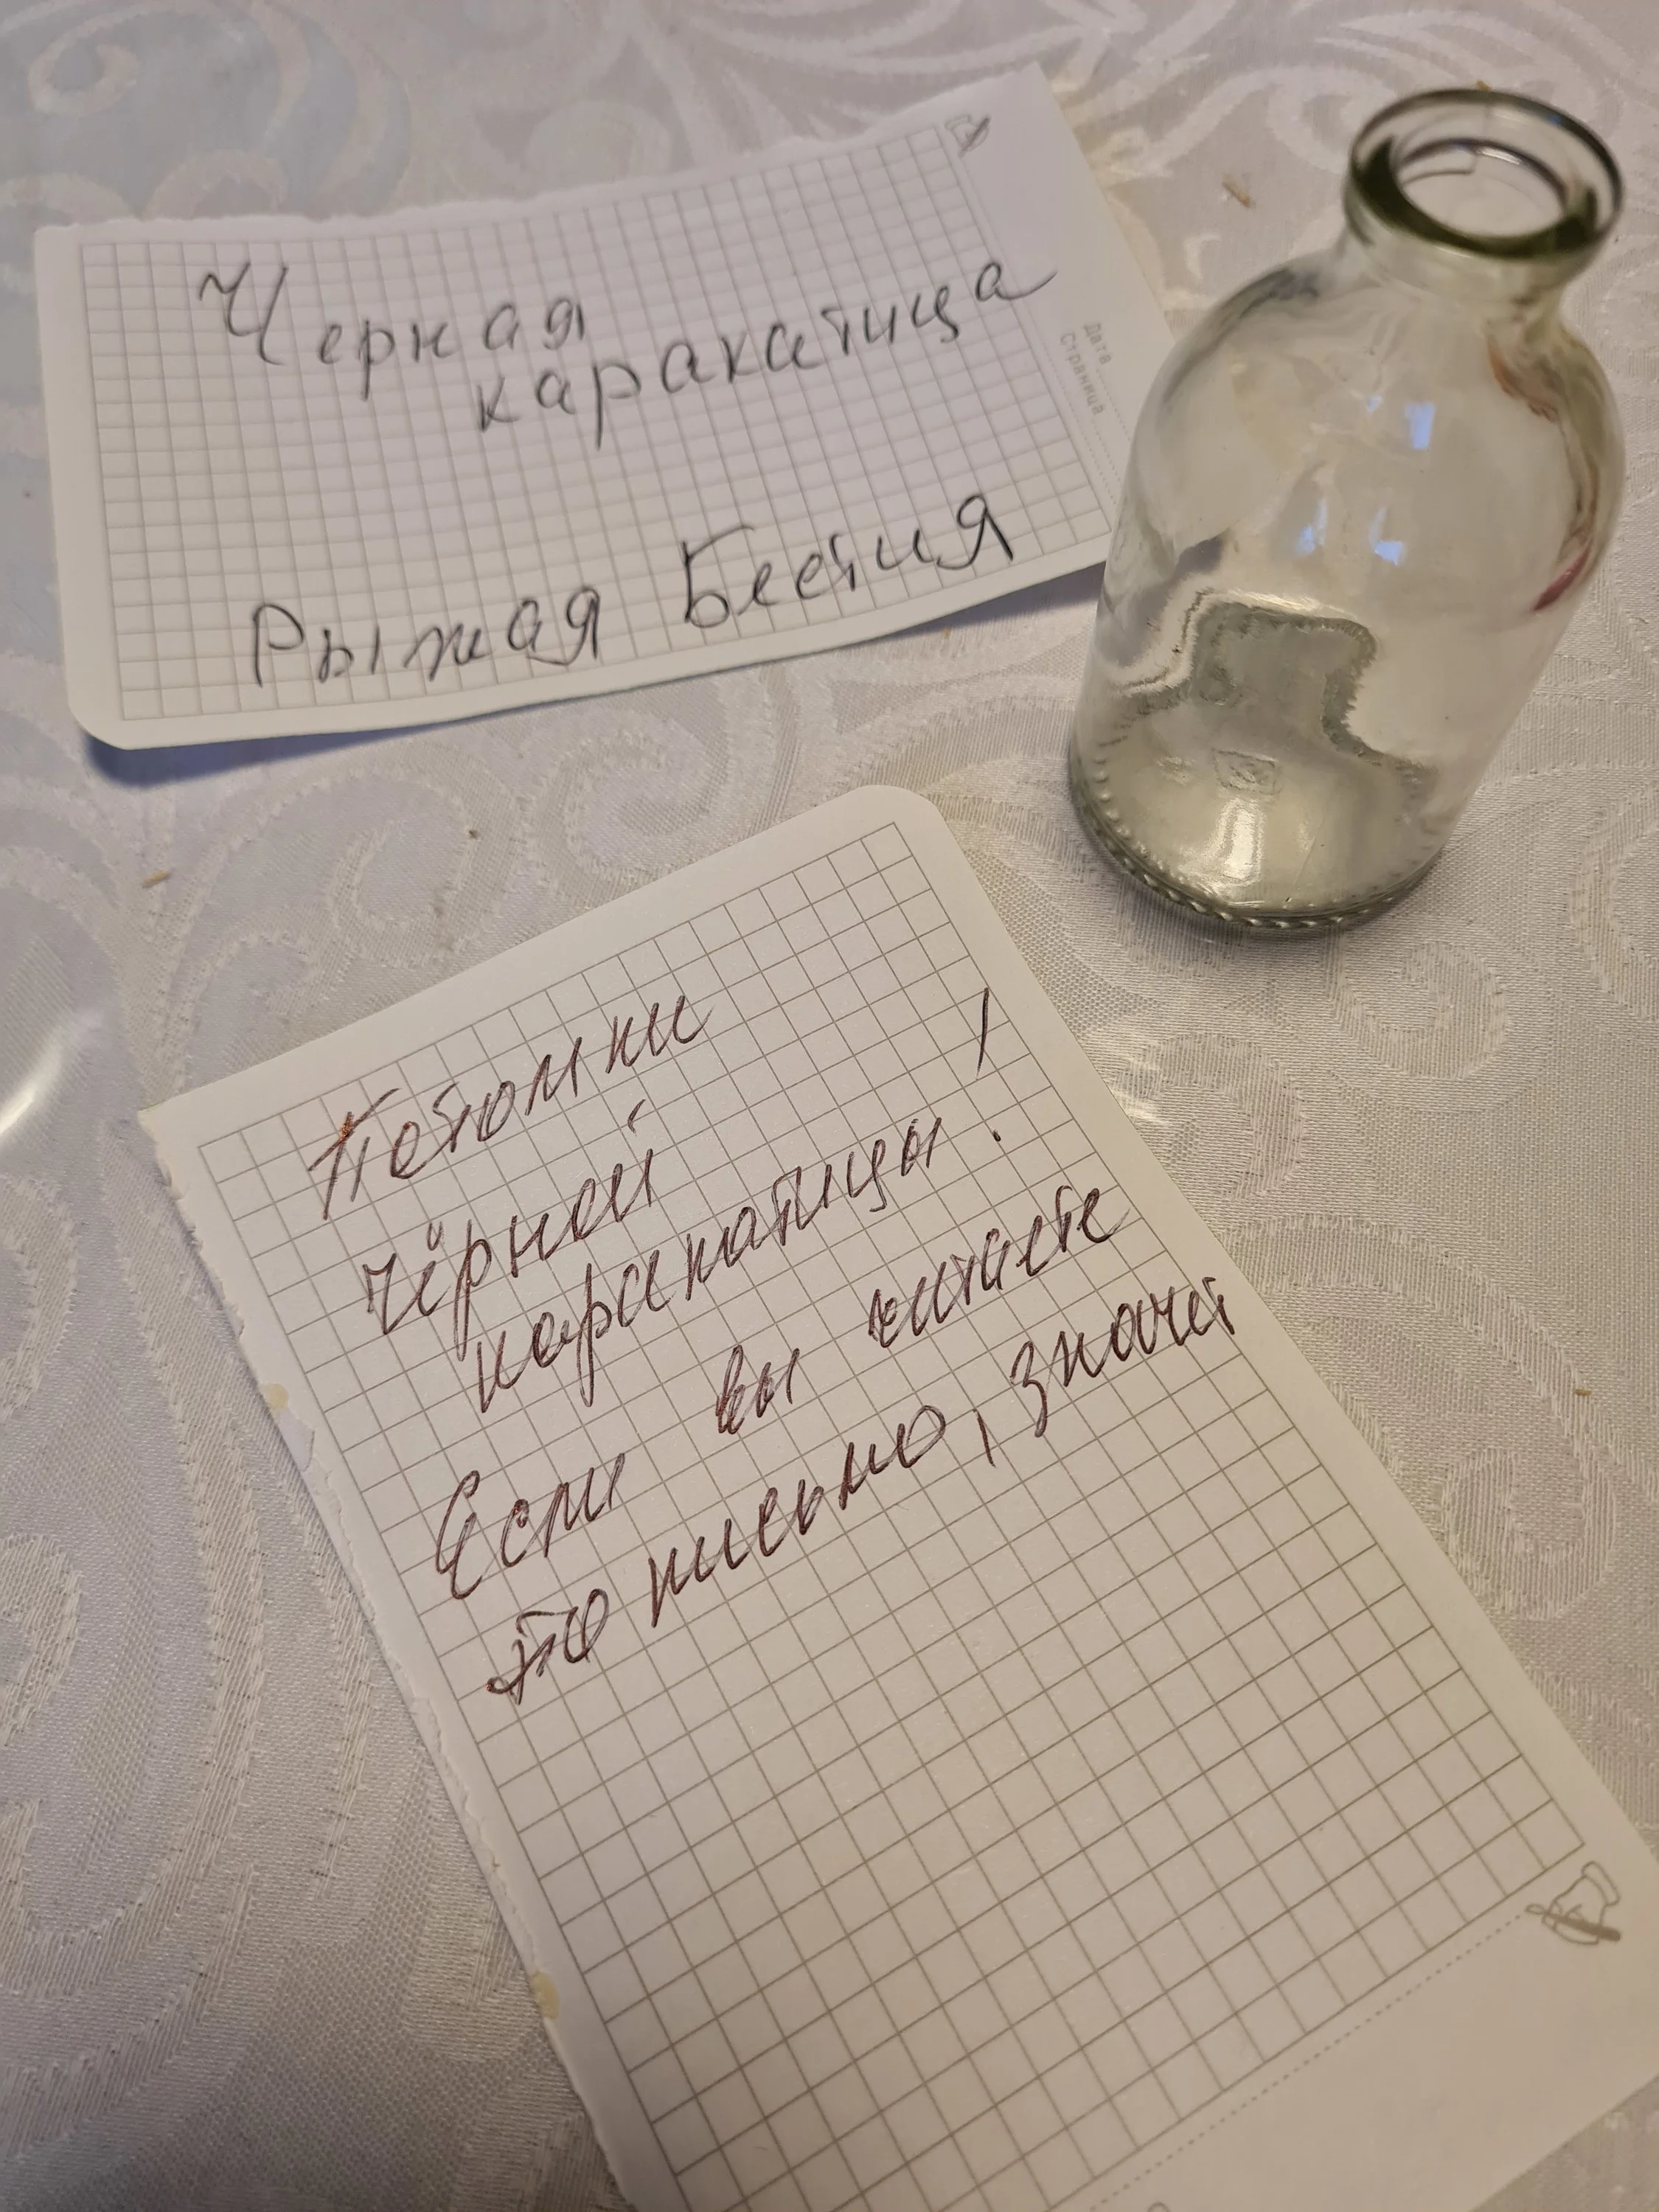 Черная
каракатица
Рыжая Бестия
Дата
Страница
Потомки
чёрной
каракатицы!
Если вы читаете
то письмо, значит